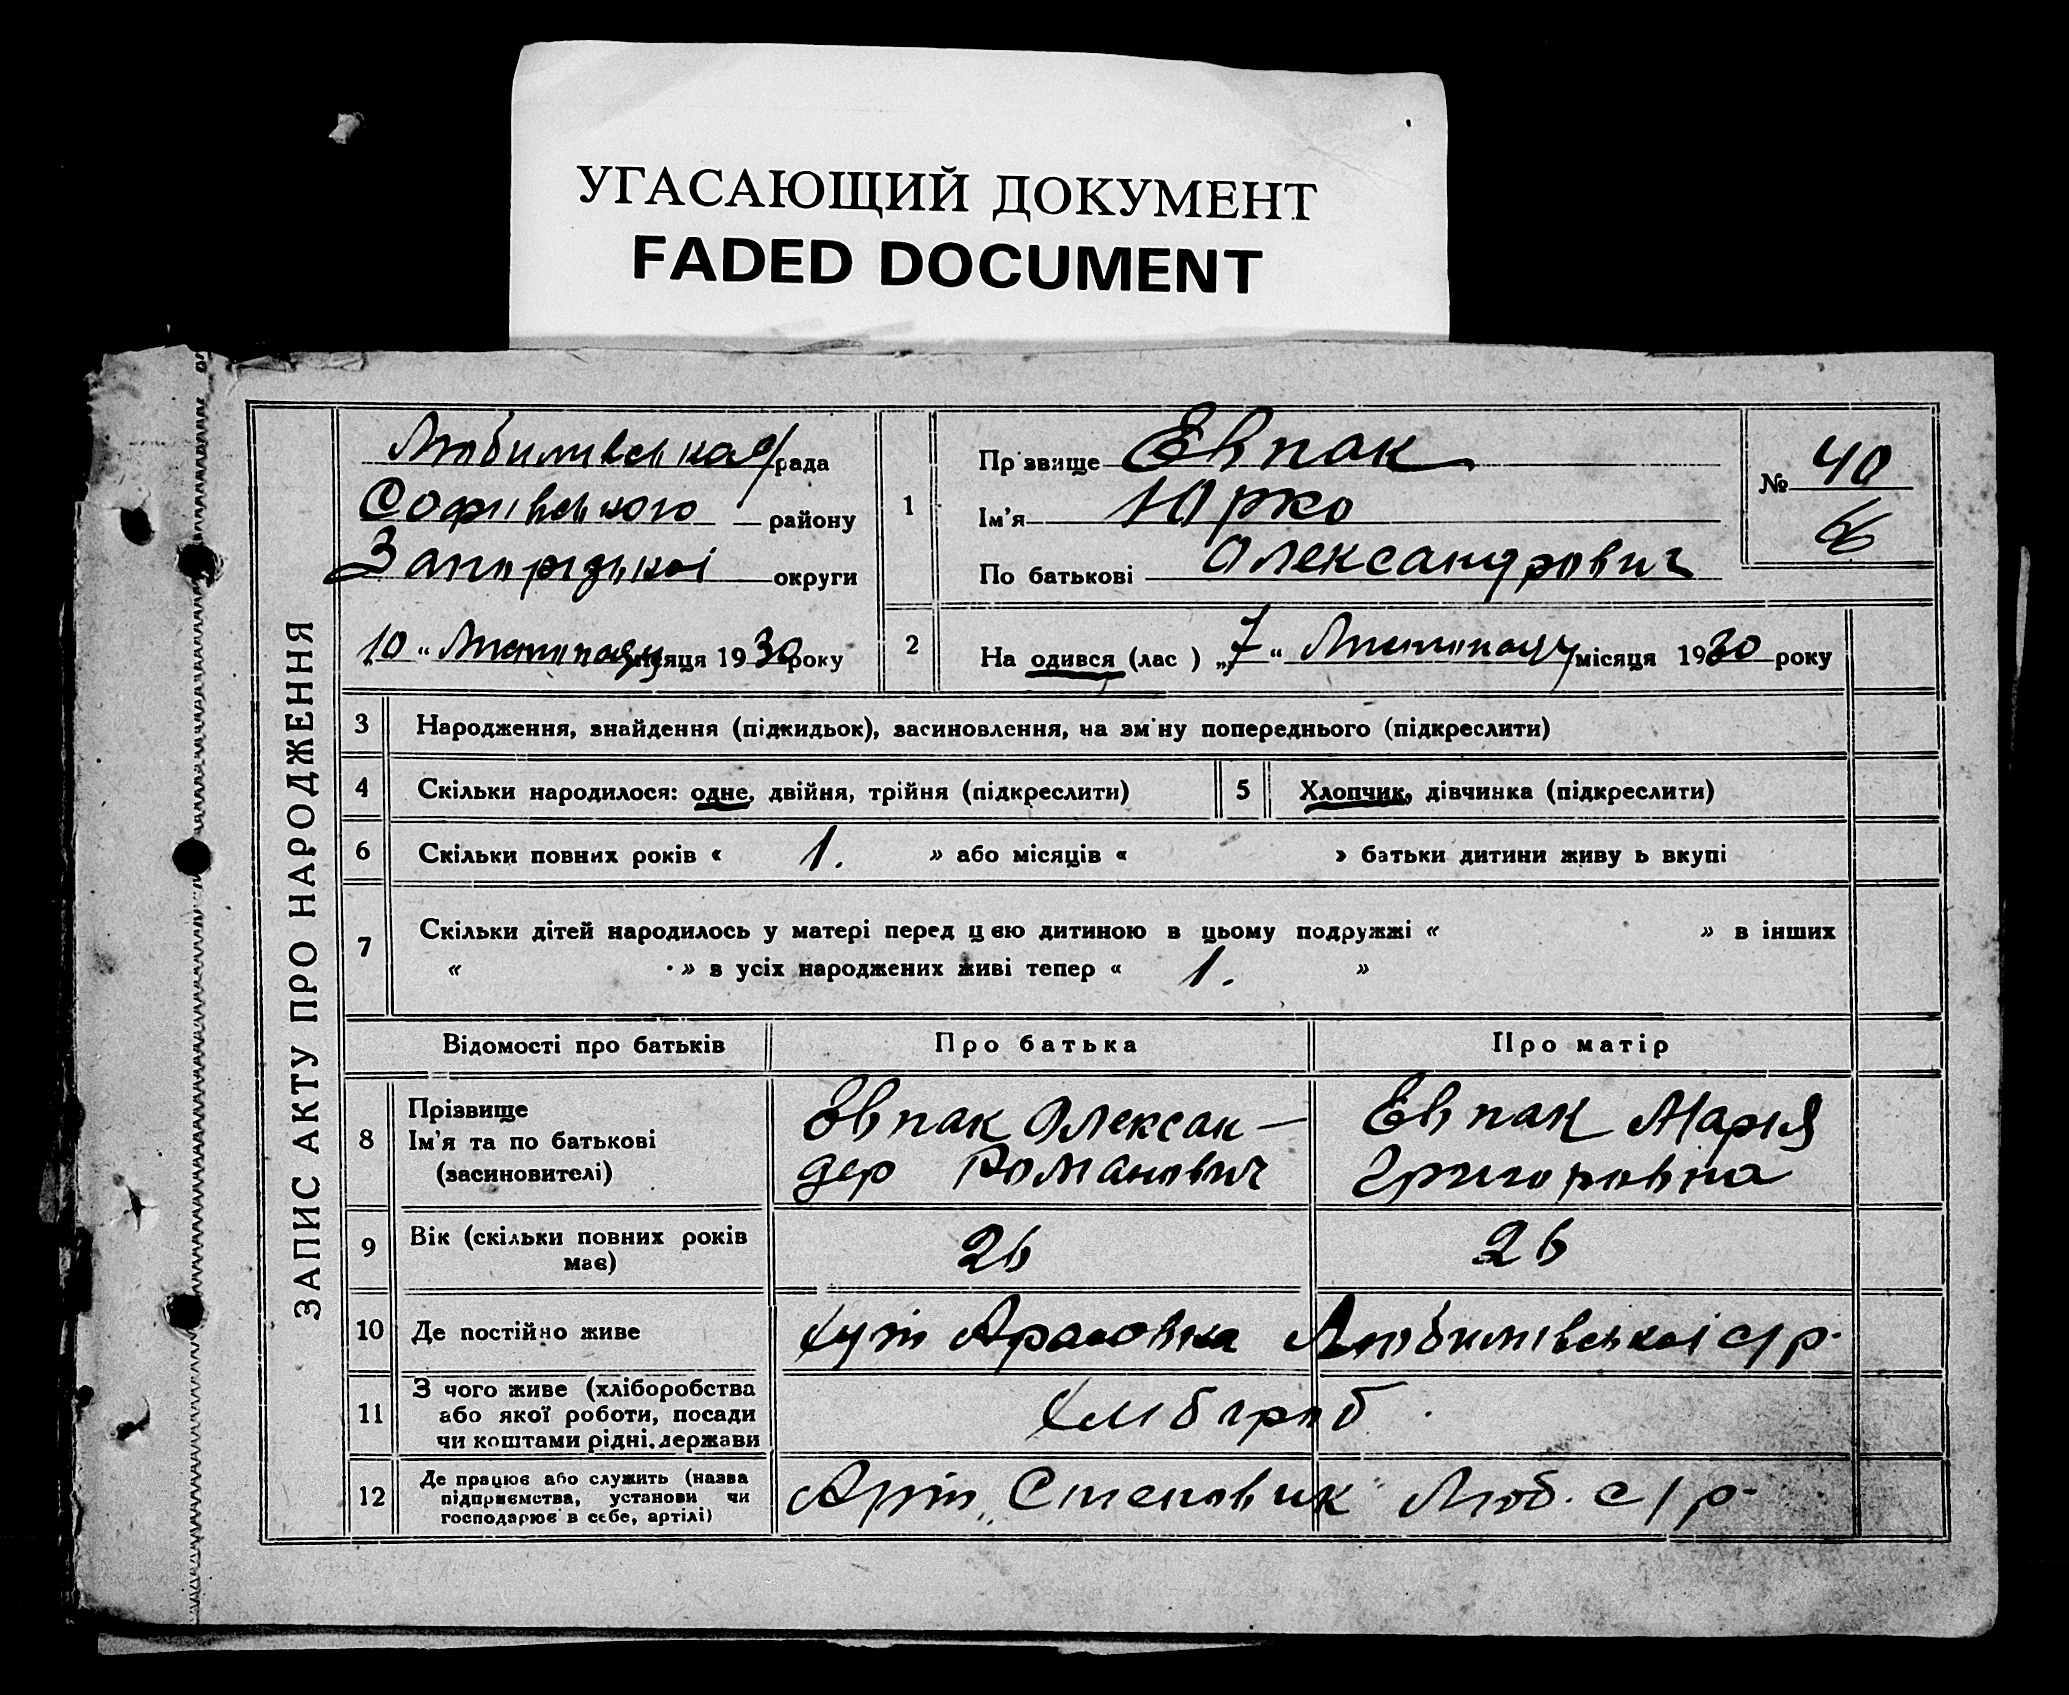 УГАСАЮЩИЙ ДОКУМЕНТ
FADED DOCUMENT
ЗАПИС АКТУ ПРО НАРОДЖЕННЯ
Любимівська с/рада
Софіївського району
Запорізької округи
10 " Листопаду місяця 1930 року
1
Прізвище Євпак
Ім'я Юрко
По батькові Олександрович
№ 40
2
На одився (лас ) „7" Листопаду місяця 1930 року
3 Народження, знайдення (підкидьок), засиновлення, на зміну попереднього (підкреслити)
4 Скільки народилося: одне, двійня, трійня (підкреслити)
5 Хлопчик, дівчинка (підкреслити)
6 Скільки повних років « 1. » або місяців « » батьки дитини живу ь вкупі
7 Скільки дітей народилось у матері перед цею дитиною в цьому подружжі « » в інших
« » в усіх народжених живі тепер « 1. »
Відомості про батьків Про батька Про матір
8 Прізвище
Ім'я та по батькові
(засиновителі)
Євпак Олексан-
дер Романович
Євпак Марія
Григоровна
9 Вік (скільки повних років
має)
26 26
10 Де постійно живе
хут Любимівської с/р.
11 З чого живе (хліборобства
або якої роботи, посади
чи коштами рідні, держави
хлібороб
12 Де працює або служить (назва
підприємства, установи чи
господарює в себе, артілі)
Арт. „Степовик" Люб. с/р.